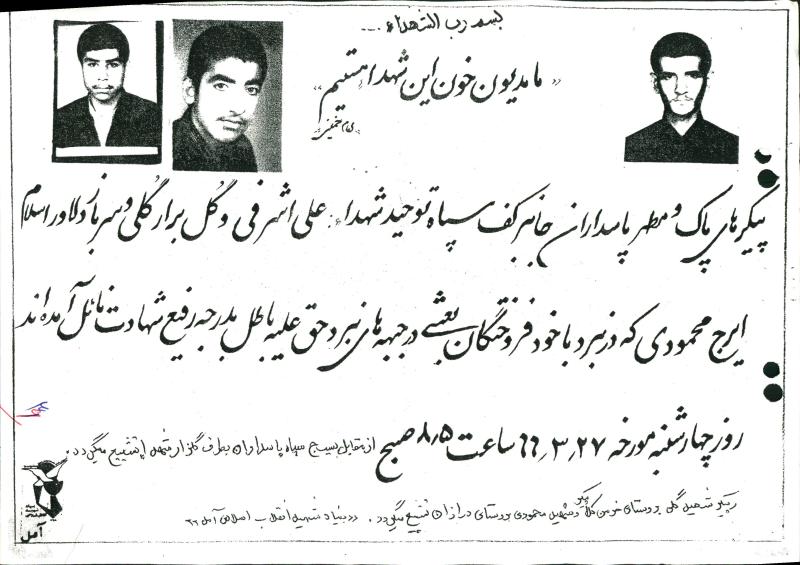 بسم رب الشهداء ...
«ما مدیون خون این شهدا هستیم»
امام خمینی
پیکرهای پاک و مطهر پاسداران جانبرکف سپاه توحید شهداء: علی اشرفی و گل برار گلی و سرباز دلاور اسلام
ایرج محمودی که در نبرد با خود فروختگان بعثی در جبهه های نبرد حق علیه باطل بدرجه رفیع شهادت نائل آمده اند
روز چهارشنبه مورخه ۶۶٫۳٫۲۷ ساعت ۸٫۵ صبح از مقابل بسیج سپاه پاسداران بطرف گلزار شهدا تشییع میگردد.
پیکر شهید گلی بروستای خرمن کلا و پیکر شهید محمودی بروستای درازان تشییع میگردد. «بنیاد شهید انقلاب اسلامی آمل ۶۶
آمل